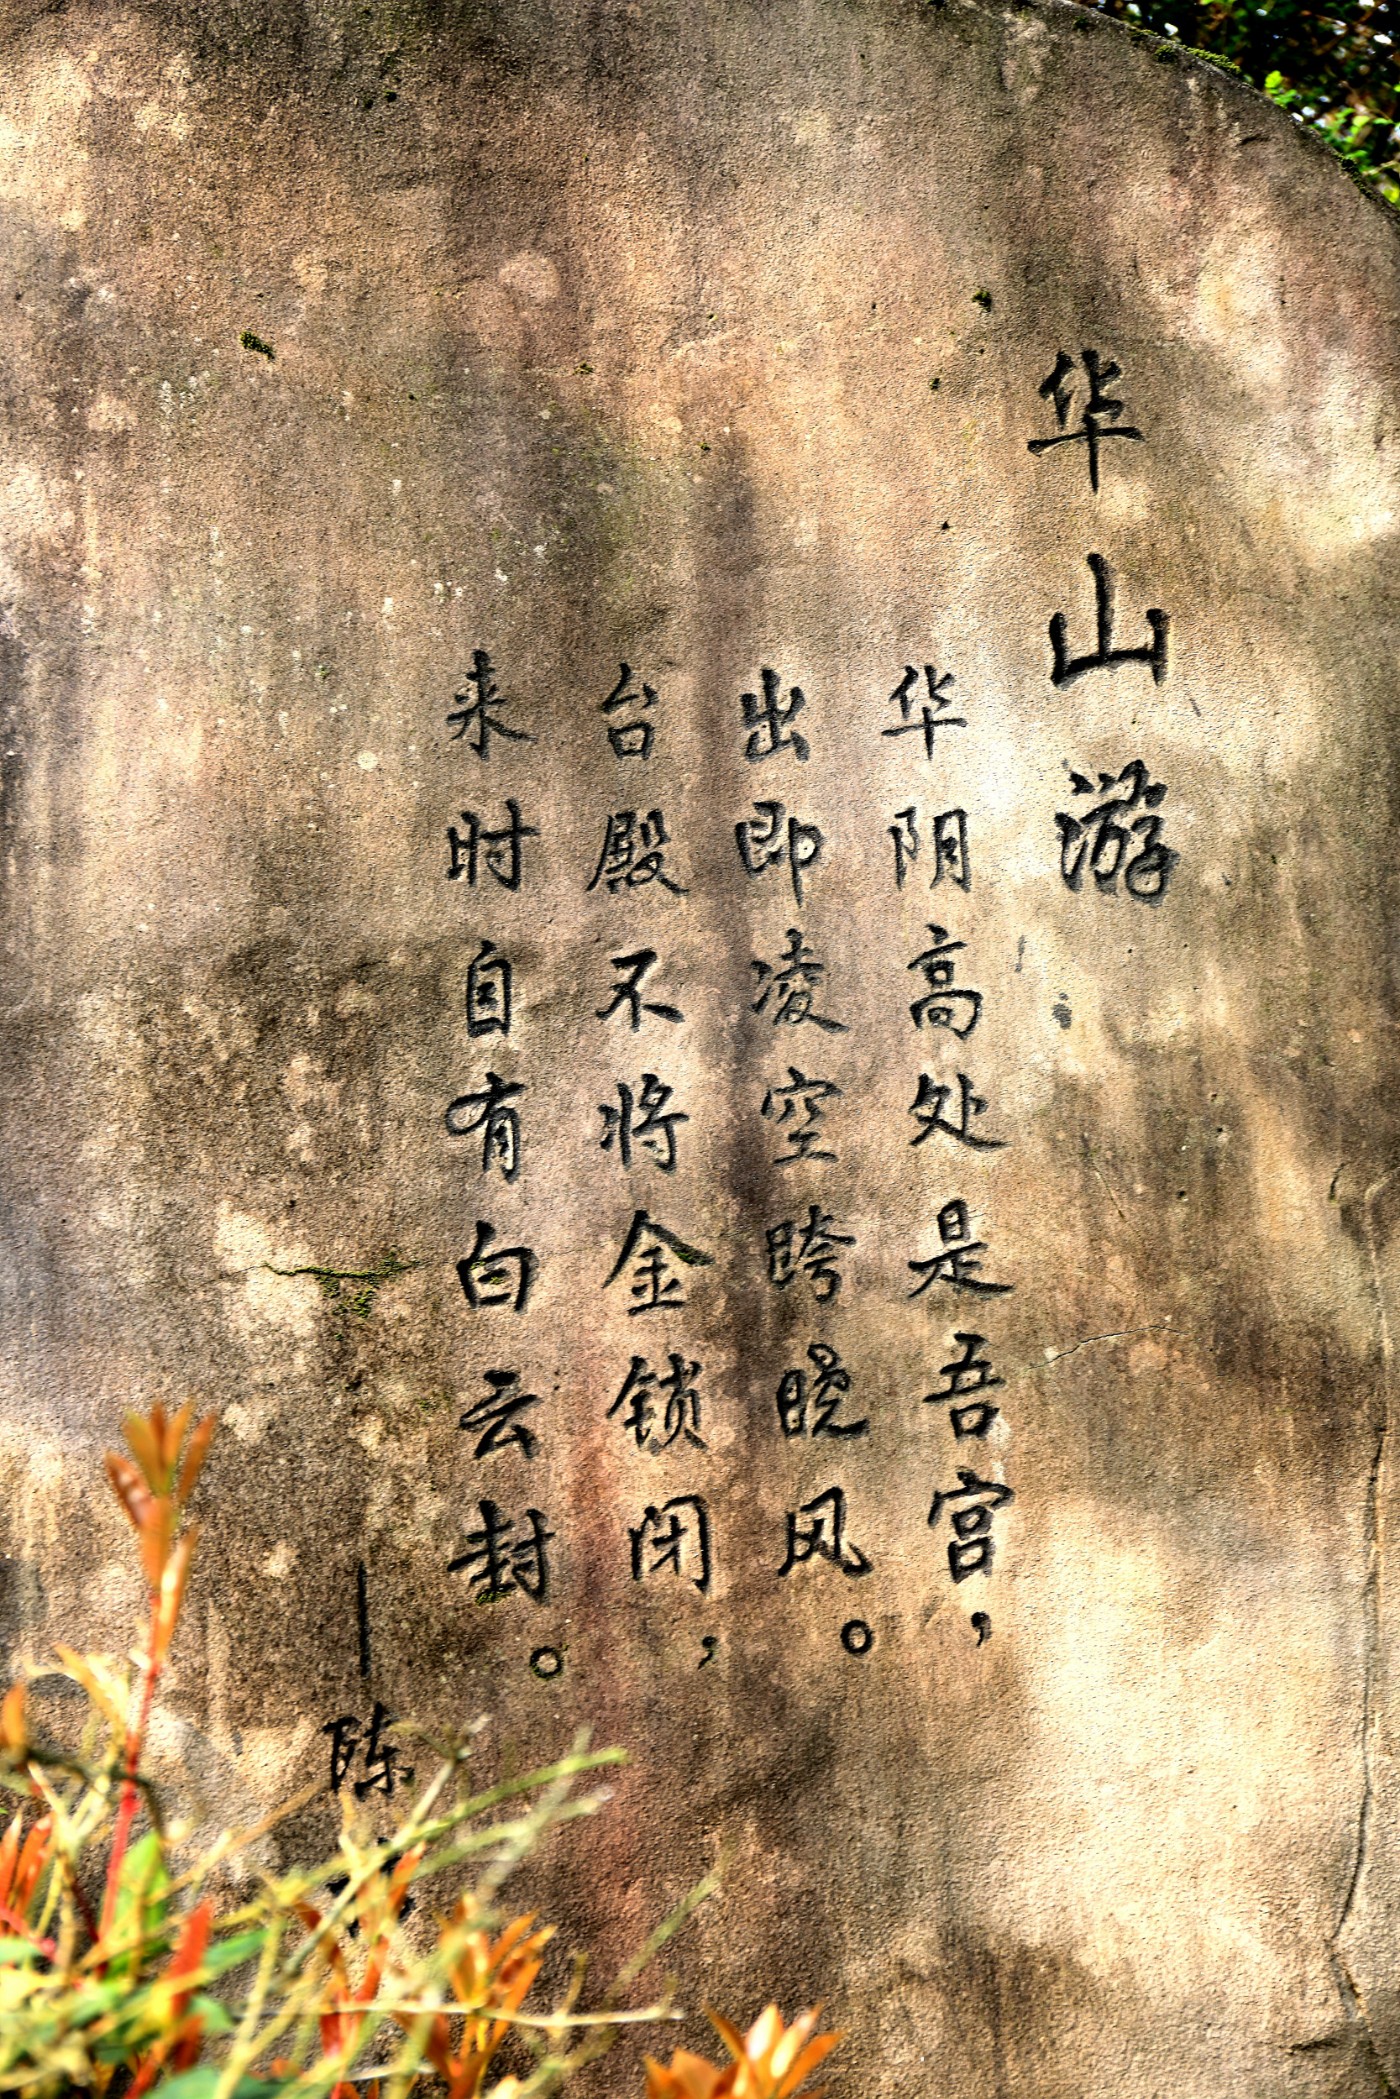 华山游
华阴高处是吾宫，
出即凌空跨晓风。
台殿不将金锁闭，
来时自有白云封。
—陈